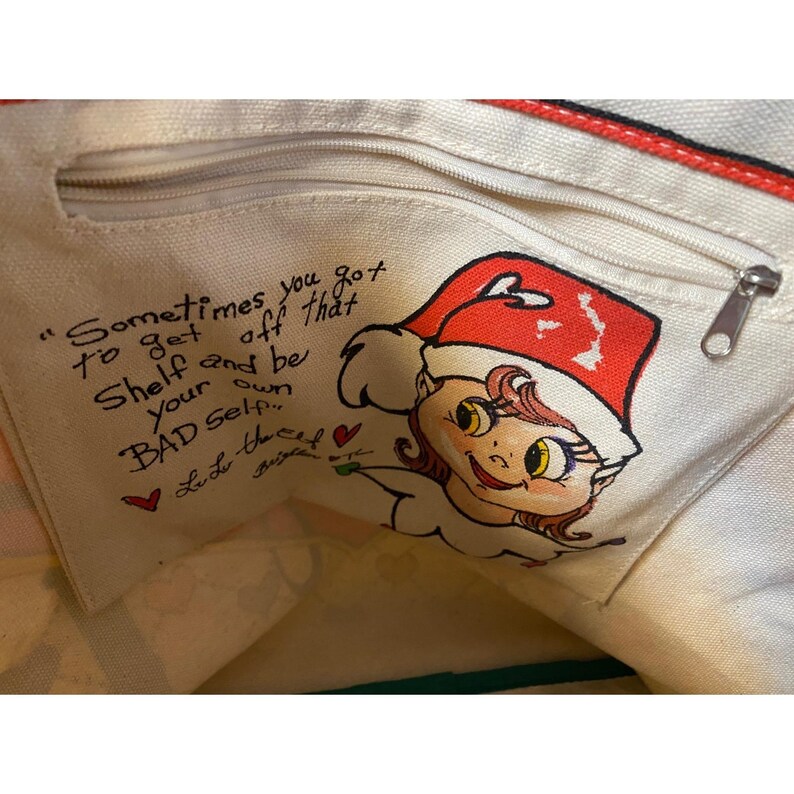 "Sometimes you got
to get off that
Shelf and be
your own
BAD Self"
LuLu the Elf
Brighton